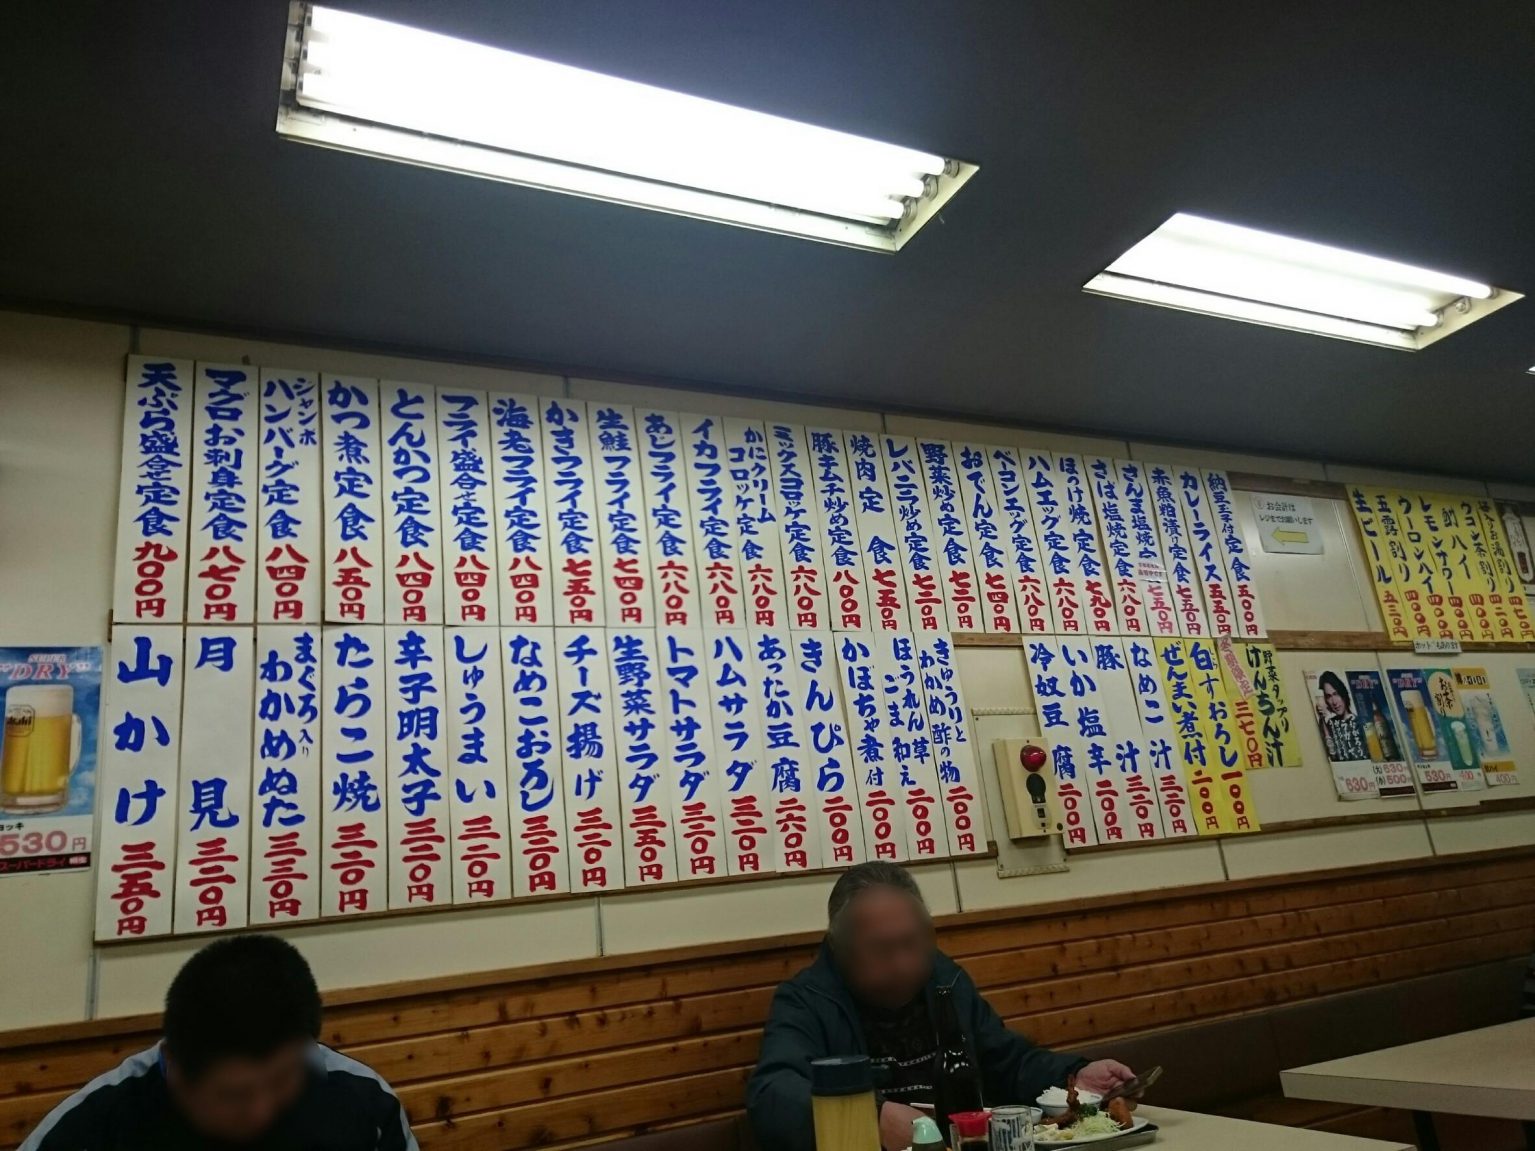 天ぷら盛合せ定食 九〇〇円
マグロお刺身定食 八七〇円
ジャンボ
ハンバーグ定食 八四〇円
かつ煮定食 八五〇円
とんかつ定食 八四〇円
フライ盛合せ定食 八四〇円
海老フライ定食 八四〇円
かきフライ定食 七五〇円
生鮭フライ定食 七四〇円
あじフライ定食 六八〇円
イカフライ定食 六八〇円
かにクリーム
コロッケ定食 六八〇円
ミックスコロッケ定食 六八〇円
豚キムチ炒め定食 八〇〇円
焼肉定食 七五〇円
レバニラ炒め定食 七三〇円
野菜炒め定食 七三〇円
おでん定食 七四〇円
ベーコンエッグ定食
ハムエッグ定食 六八〇円
ほっけ焼定食
さば塩焼定食 六八〇円
さんま塩焼
赤魚粕漬け定食 七五〇円
カレーライス 五五〇円
納豆玉子付定食 五〇〇円
お会計は
レジまでお願いします
生ビール 五三〇円
玉露割り 四〇〇円
ウーロンハイ 四〇〇円
レモンサワー 四〇〇円
酎ハイ 四〇〇円
ウコン茶割り
ホットもあります
山かけ 三五〇円
月見 三二〇円
まぐろ入り
わかめぬた 三三〇円
たらこ焼 三二〇円
辛子明太子 三二〇円
しゅうまい 三二〇円
なめこおろし 三二〇円
チーズ揚げ 三二〇円
生野菜サラダ 三五〇円
トマトサラダ 三二〇円
ハムサラダ 三二〇円
あったか豆腐 二六〇円
きんぴら 二〇〇円
かぼちゃ煮付 二〇〇円
ほうれん草
ごま和え 二〇〇円
きゅうりと
わかめ酢の物 二〇〇円
冷奴豆腐 二〇〇円
いか塩辛 二〇〇円
豚汁 三二〇円
なめこ汁 三二〇円
ぜんまい煮付 二〇〇円
白すおろし 一〇〇円
野菜タップリ
けんちん汁
三七〇円
SUPER
"DRY"
Asahi
ジョッキ
530円
スーパードライ
630円
530円